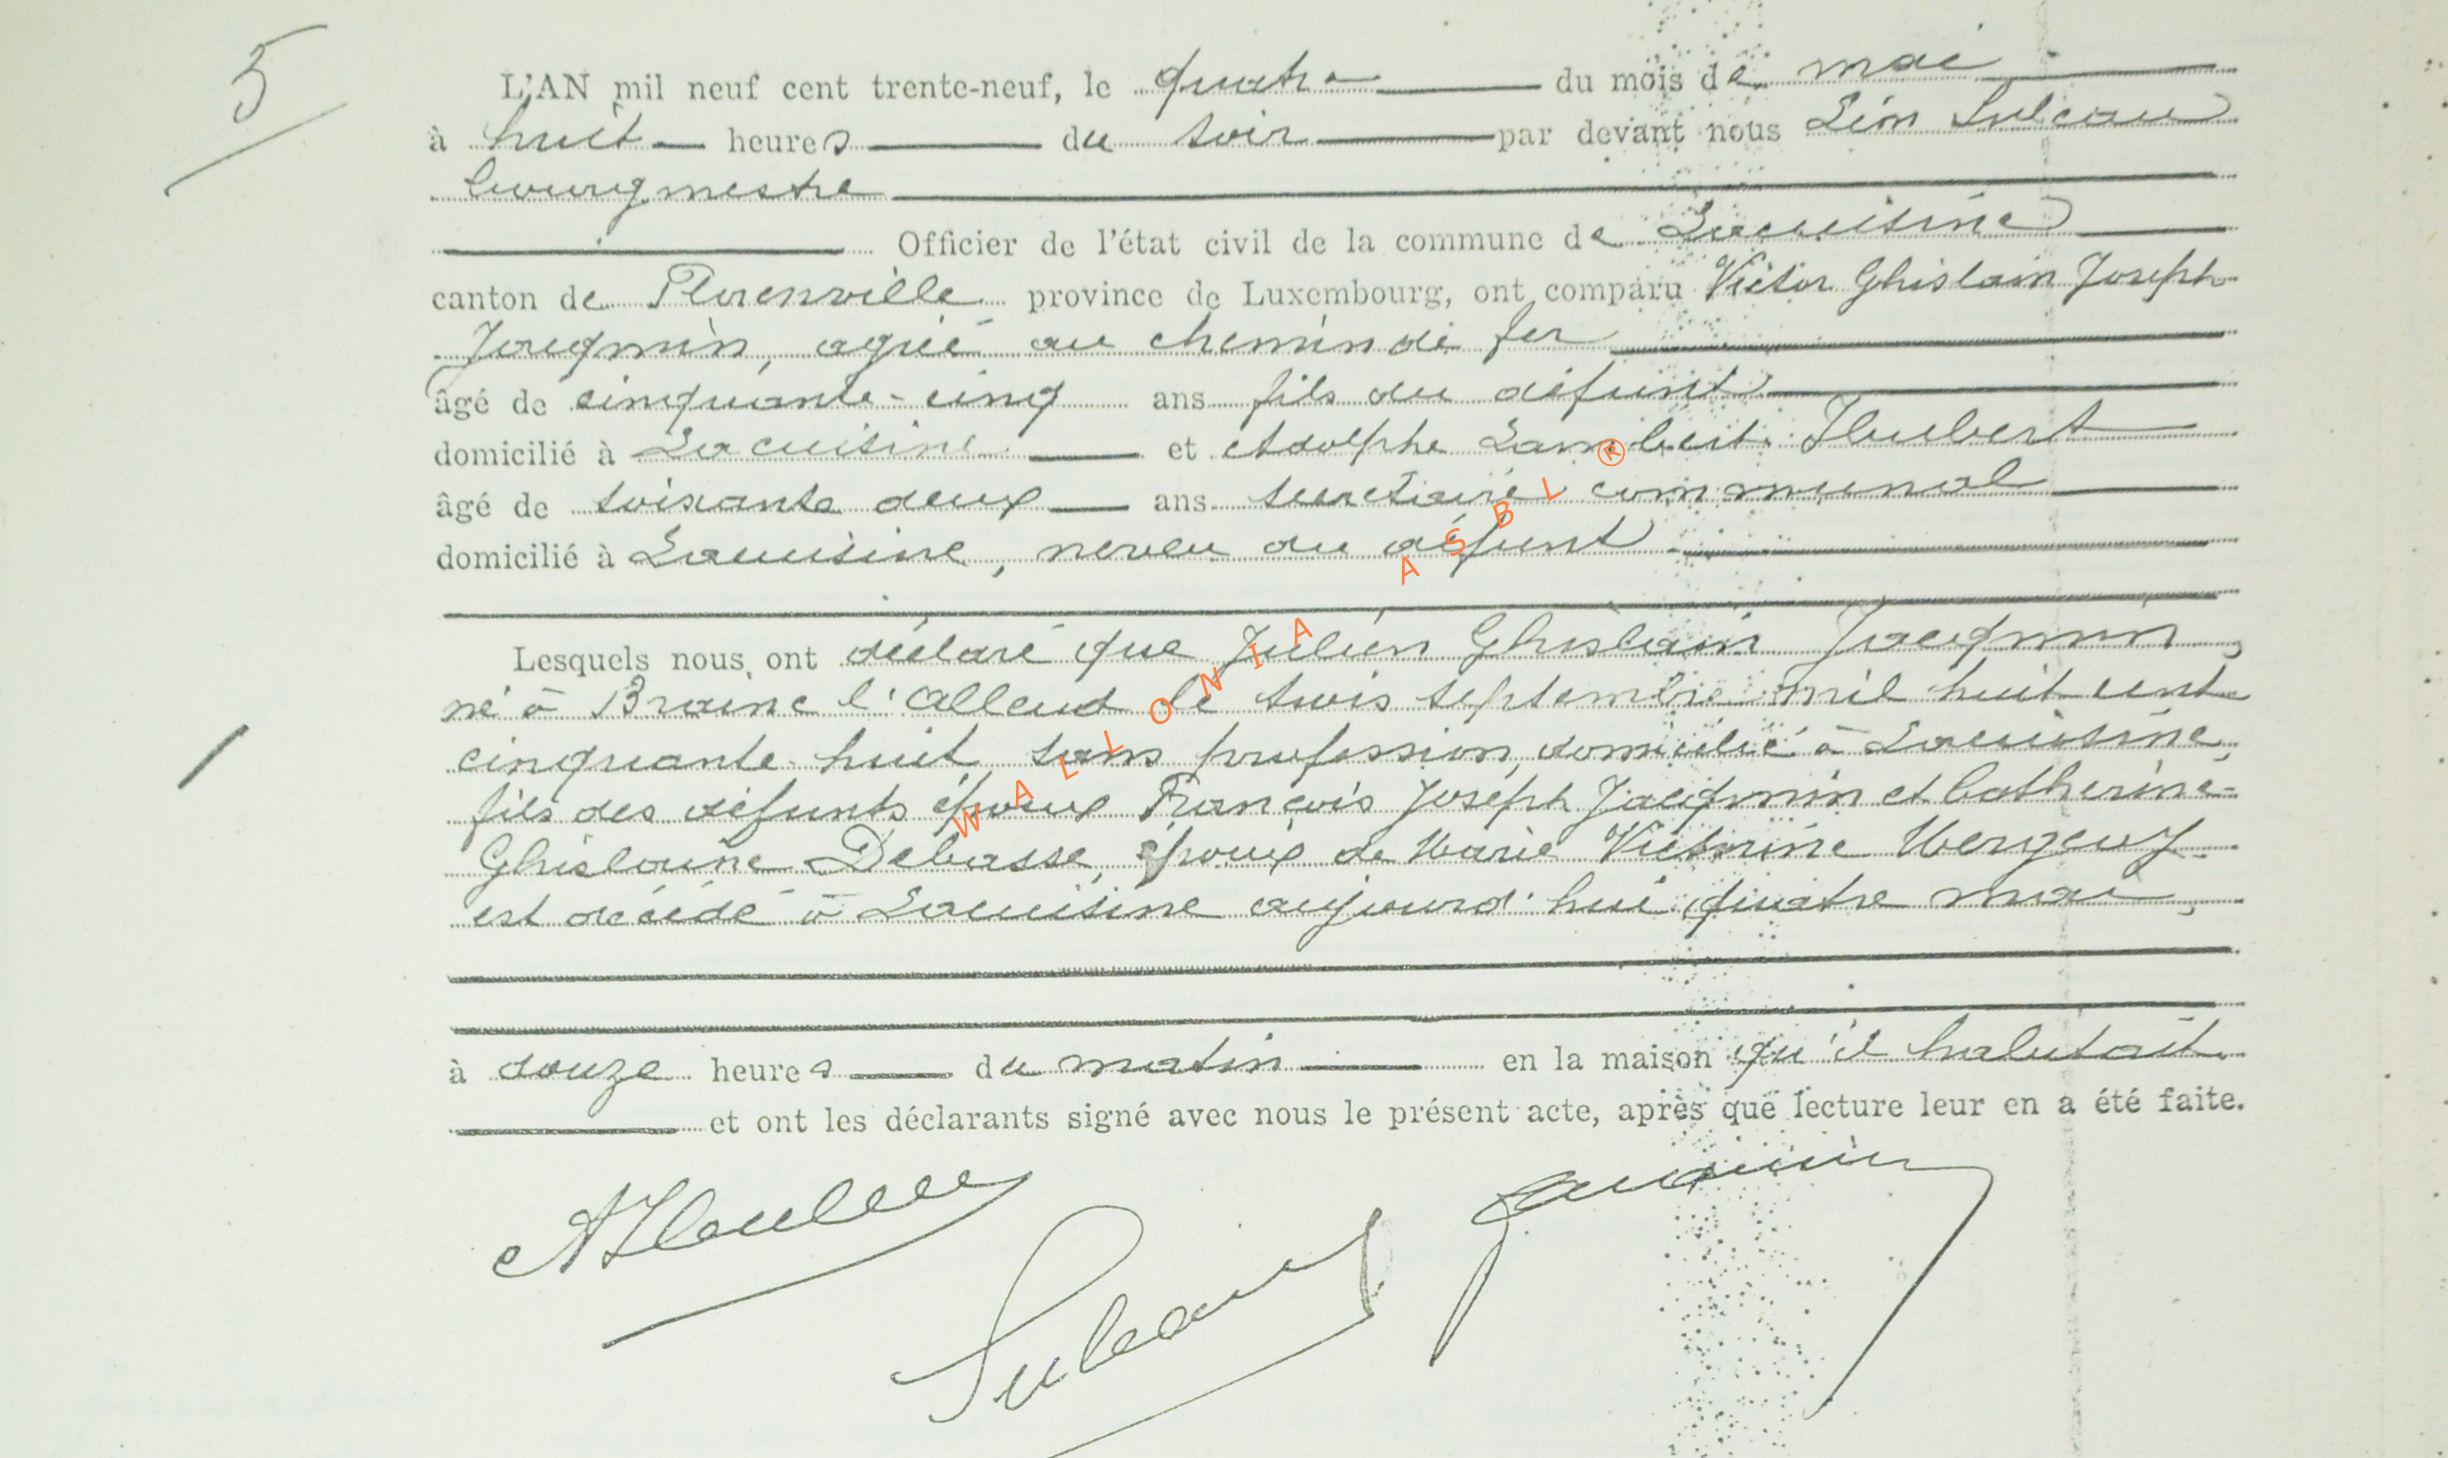 5
L'AN mil neuf cent trente-neuf, le quatre du mois de mai
à huit heures du soir par devant nous Léon Suleau
bourgmestre
Officier de l'état civil de la commune de Lacuisine
canton de Florenville province de Luxembourg, ont comparu Victor Ghislain Joseph
Jacqmin, agréé au chemin de fer
âgé de cinquante-cinq ans fils du défunt
domicilié à Lacuisine et Adolphe Lambert Hubert
âgé de soixante deux ans secrétaire communal
domicilié à Lacuisine, neveu du défunt
Lesquels nous ont déclaré que Julien Ghislain Jacqmin,
né à Braine l'Alleud le trois septembre mil huit cent
cinquante-huit sans profession, domicilié à Lacuisine,
fils des défunts époux François Joseph Jacqmin et Catherine-
Ghislaine Debasse, époux de Marie Victorine
est décédé à Lacuisine aujourd'hui quatre mai,
à douze heures du matin en la maison qu'il habitait
et ont les déclarants signé avec nous le présent acte, après que lecture leur en a été faite.
Suleau Jacqmin
WALLONIA ASBL ®